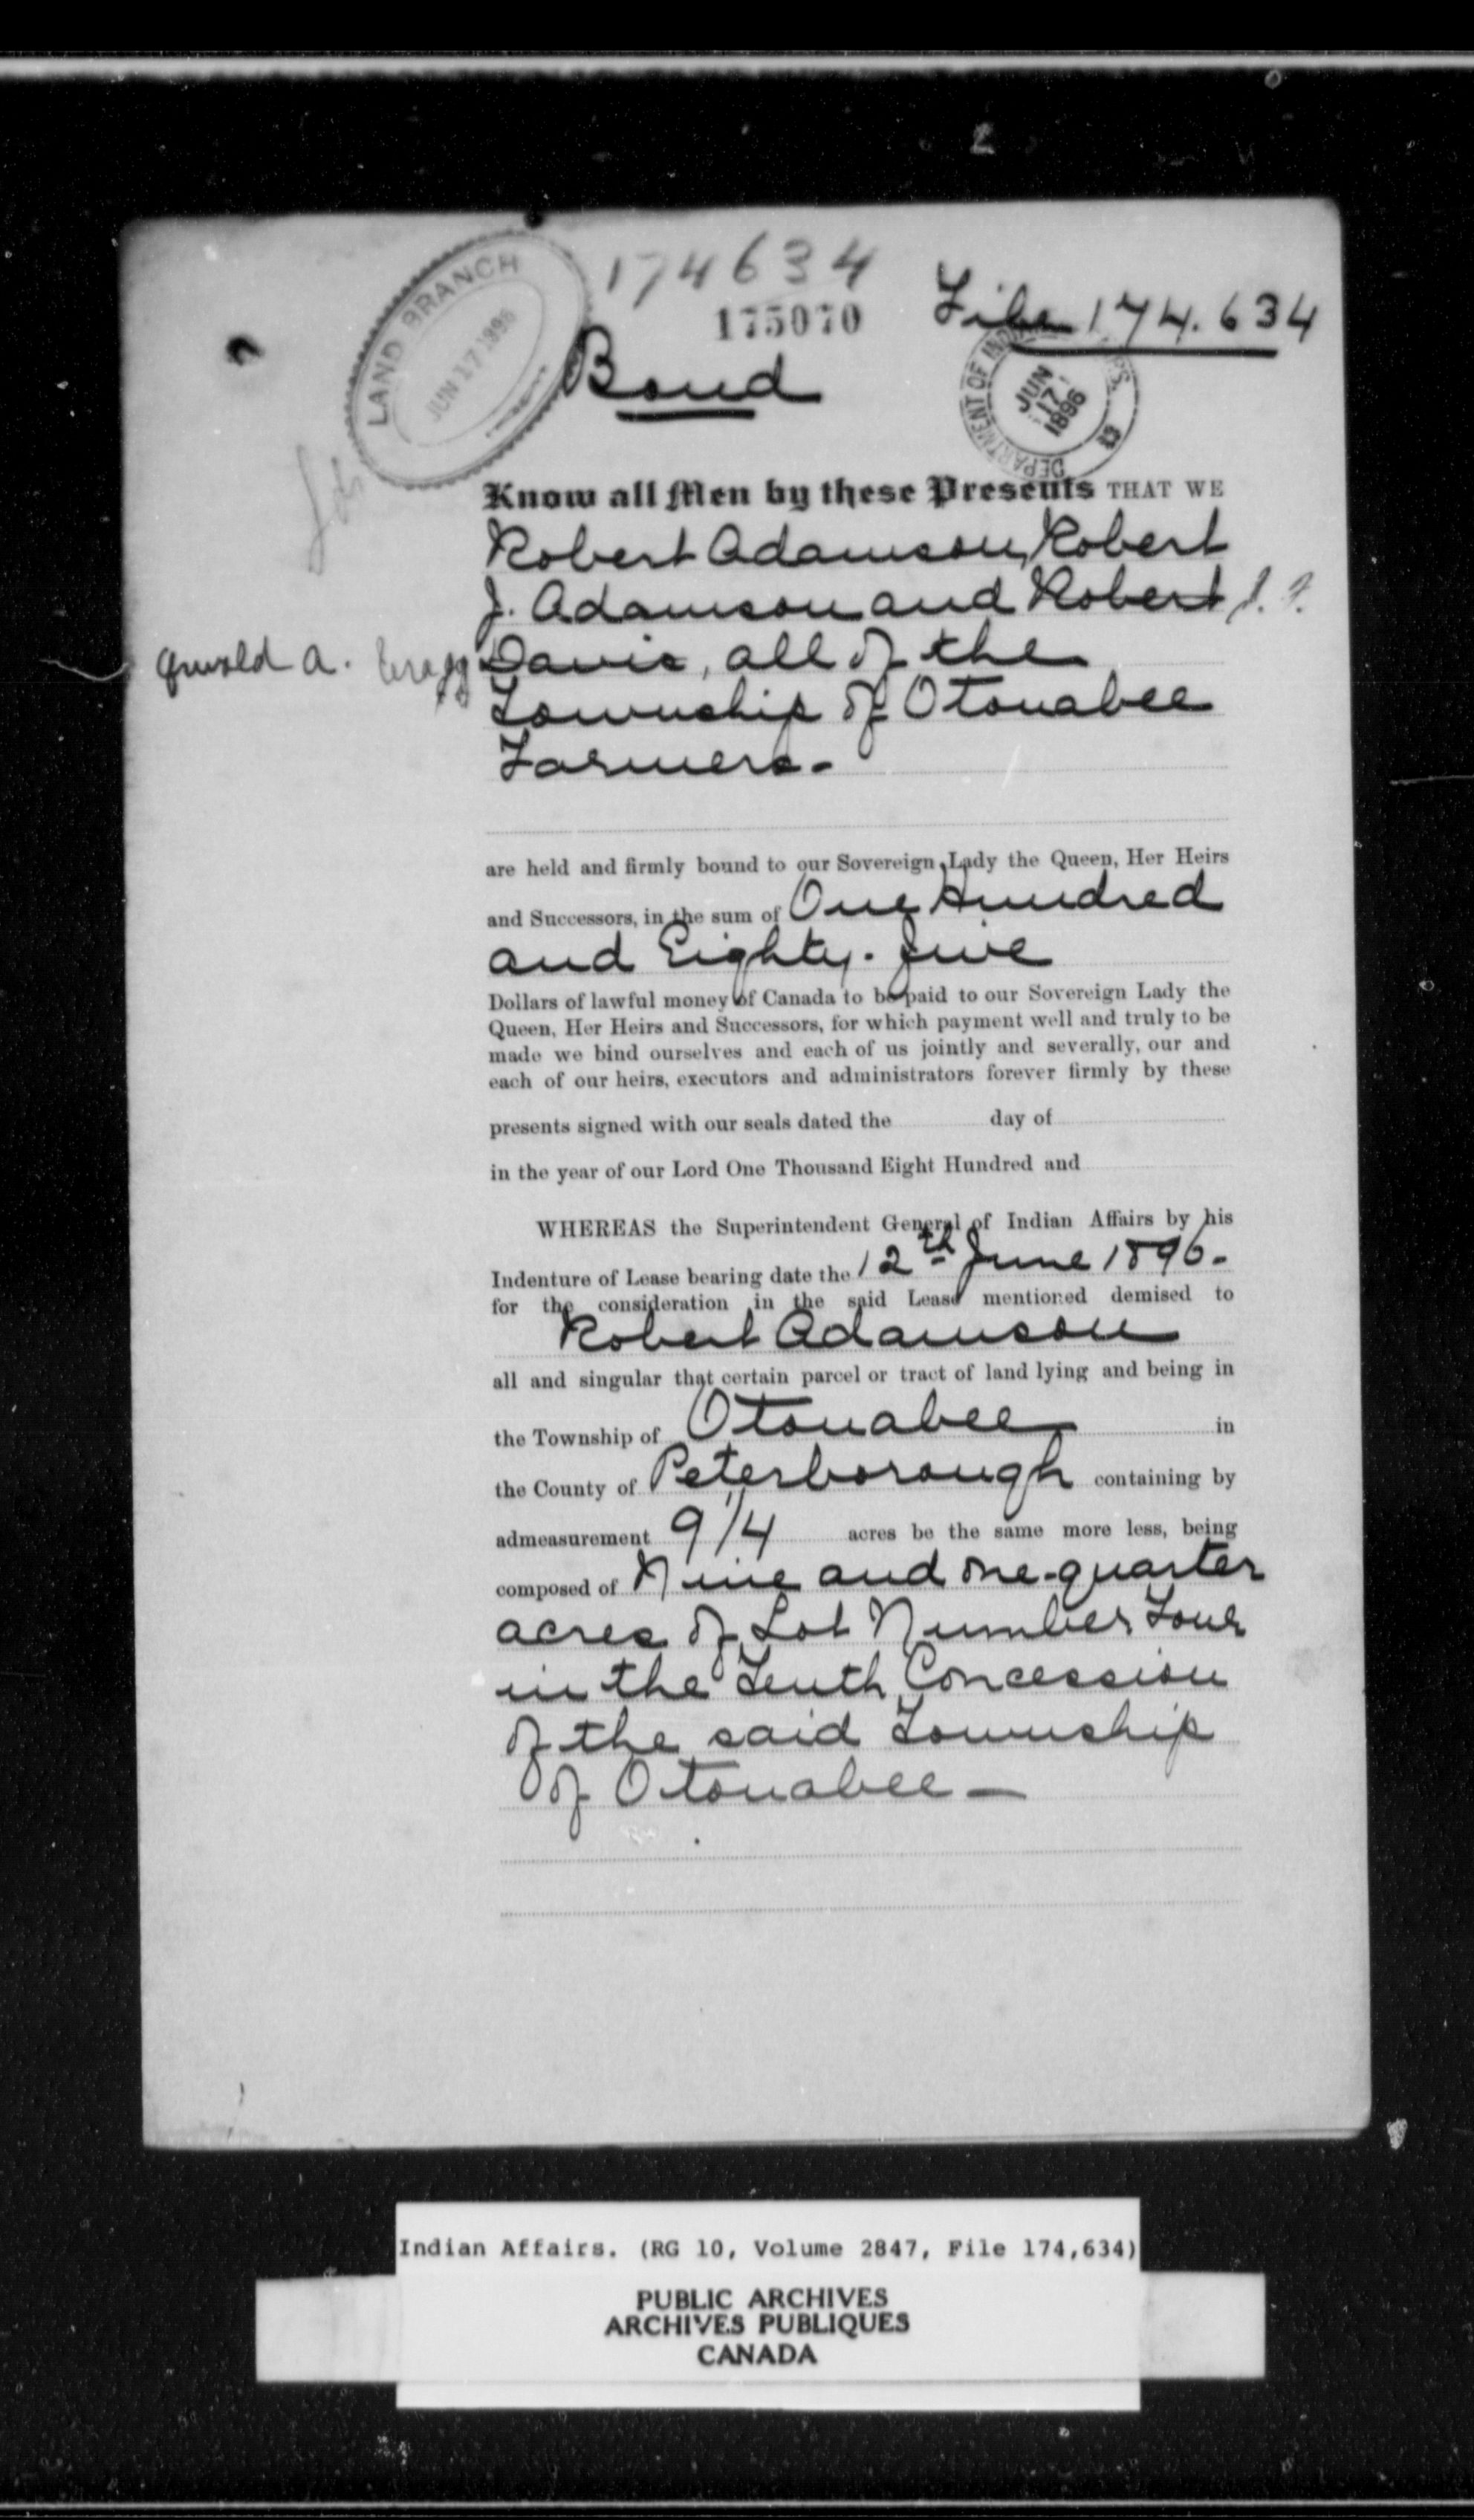 174634
175070
File 174.634
LAND BRANCH
JUN 17 1896
DEPARTMENT OF INDIAN AFFAIRS
JUN
17
1896
Bond
Know all Men by these Presents THAT WE
Robert Adamson, Robert
J. Adamson and Robert
Davis, all of the
A.
Township of Otonabee
Farmers.
are held and firmly bound to our Sovereign Lady the Queen, Her Heirs
and Successors, in the sum of One Hundred
and Eighty-five
Dollars of lawful money of Canada to be paid to our Sovereign Lady the
Queen, Her Heirs and Successors, for which payment well and truly to be
made we bind ourselves and each of us jointly and severally, our and
each of our heirs, executors and administrators forever firmly by these
presents signed with our seals dated the day of
in the year of our Lord One Thousand Eight Hundred and
WHEREAS the Superintendent General of Indian Affairs by his
Indenture of Lease bearing date the 12th June 1896.
for the consideration in the said Lease mentioned demised to
Robert Adamson
all and singular that certain parcel or tract of land lying and being in
the Township of Otonabee in
the County of Peterborough containing by
admeasurement 9 1/4 acres be the same more less, being
composed of Nine and one-quarter
acres of Lot Number Four
in the Tenth Concession
of the said Township
of Otonabee —
Indian Affairs. (RG 10, Volume 2847, File 174,634)
PUBLIC ARCHIVES
ARCHIVES PUBLIQUES
CANADA